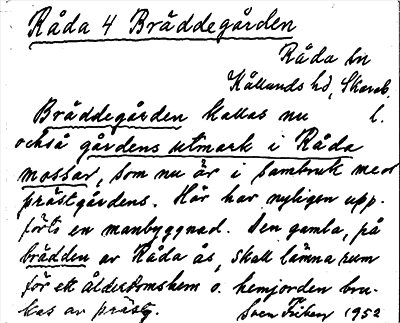 Råda 4 Bräddegården
Råda sn
Kållands hd, Skarab. l.
Bräddegården kallas nu
också gårdens utmark i Råda
mossar, som nu är i sambruk med
prästgårdens. Här har nyligen upp-
förts en manbyggnad. Den gamla, på
brädden av Råda ås, skall lämna rum
för ett ålderdomshem o. hemjorden bru-
kas av prästg. Sven 1952